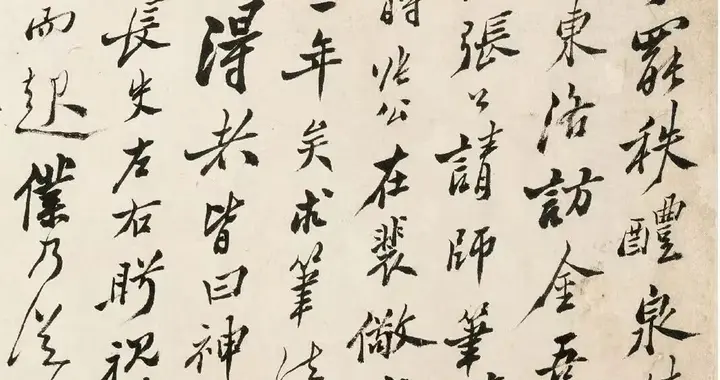 罷秩醴泉
東洛訪金吾
張公請師筆
時張公在裴儆
一年矣求筆法
得者皆曰神
長史左右眄視
而起僕乃從